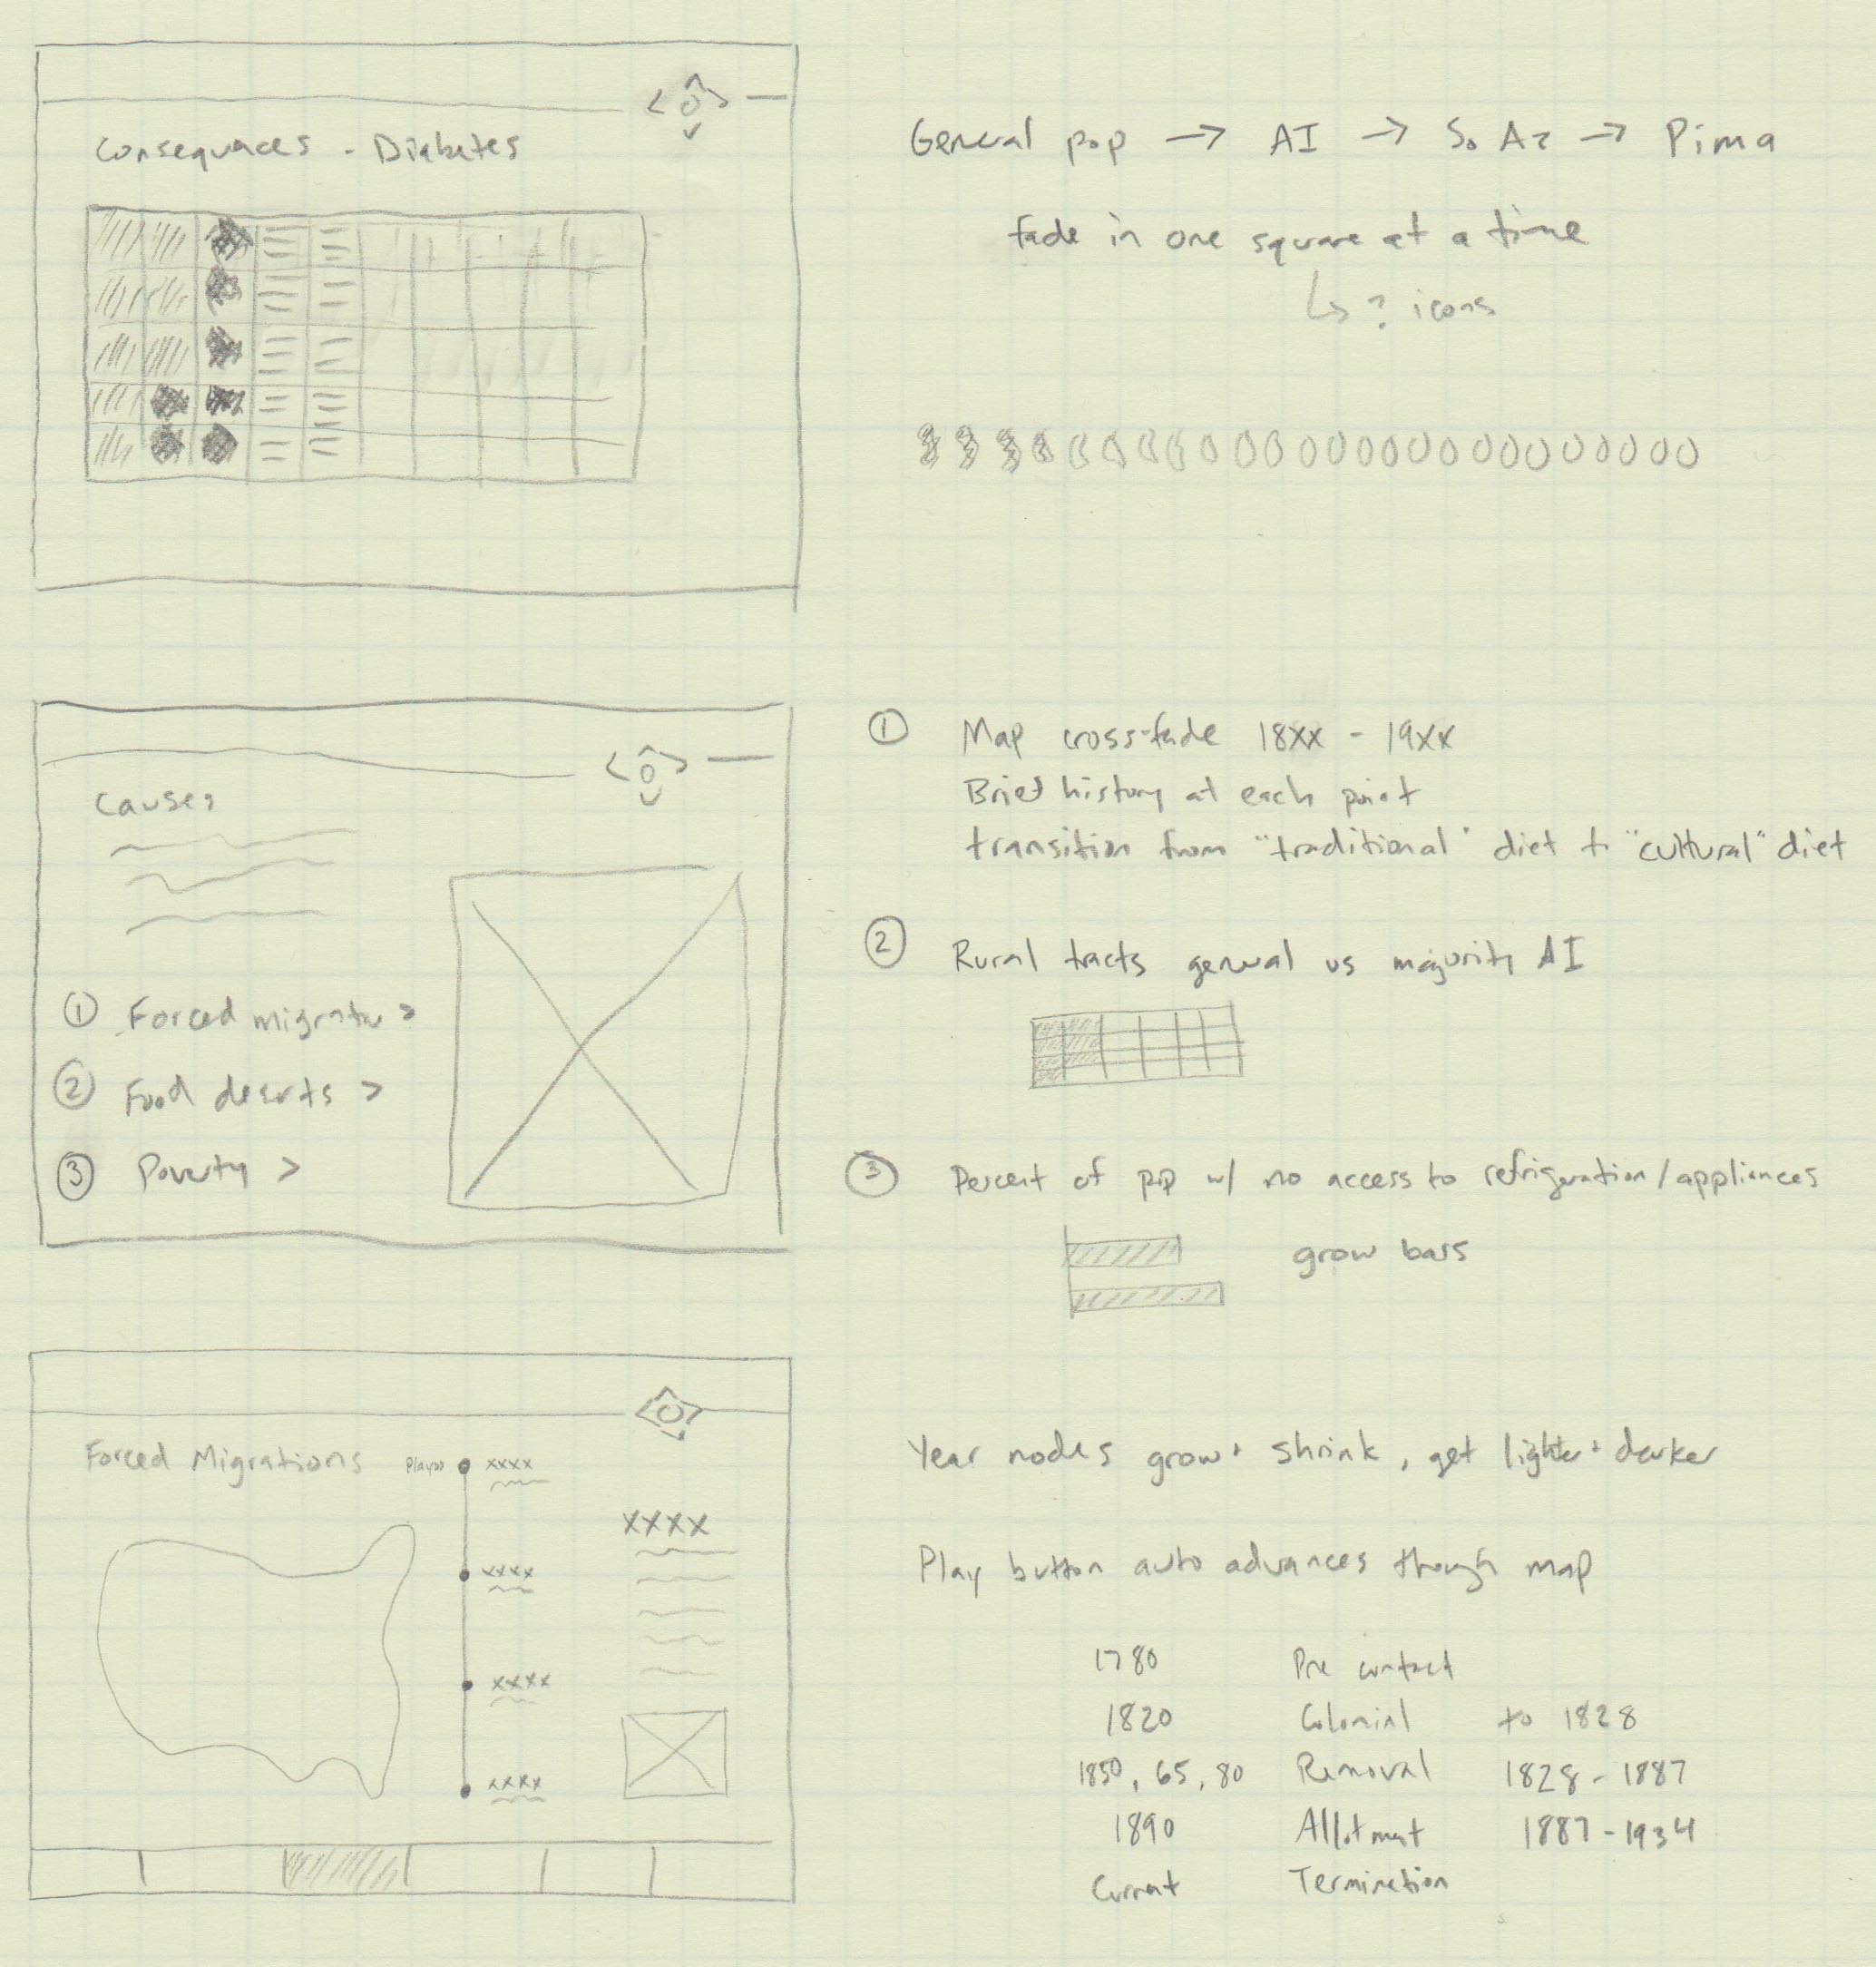 Consequnces - Diabetes
General pop → AI → So Az → Pima
fade in one square at a time
↳ ? icons
Causes
① Forced migration >
② Food deserts >
③ Poverty >
① Map cross-fade 18xx - 19xx
Brief history at each point
transition from "traditional" diet to "cultural" diet
② Rural tracts general vs majority AI
③ Percent of pop w/ no access to refrigeration/appliances
grow bars
Forced Migrations
Play
xxxx
xxxx
xxxx
xxxx
XXXX
Year nodes grow + shrink, get lighter + darker
Play button auto advances though map
1780 Pre contact
1820 Colonial to 1828
1850, 65, 80 Removal 1828 - 1887
1890 Allotment 1887 - 1934
Current Termination